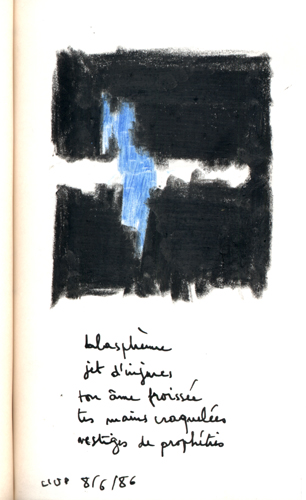 blasphème
jet d'injures
ton âme froissée
tes mains craquelées
vestiges de prophéties
8/6/86